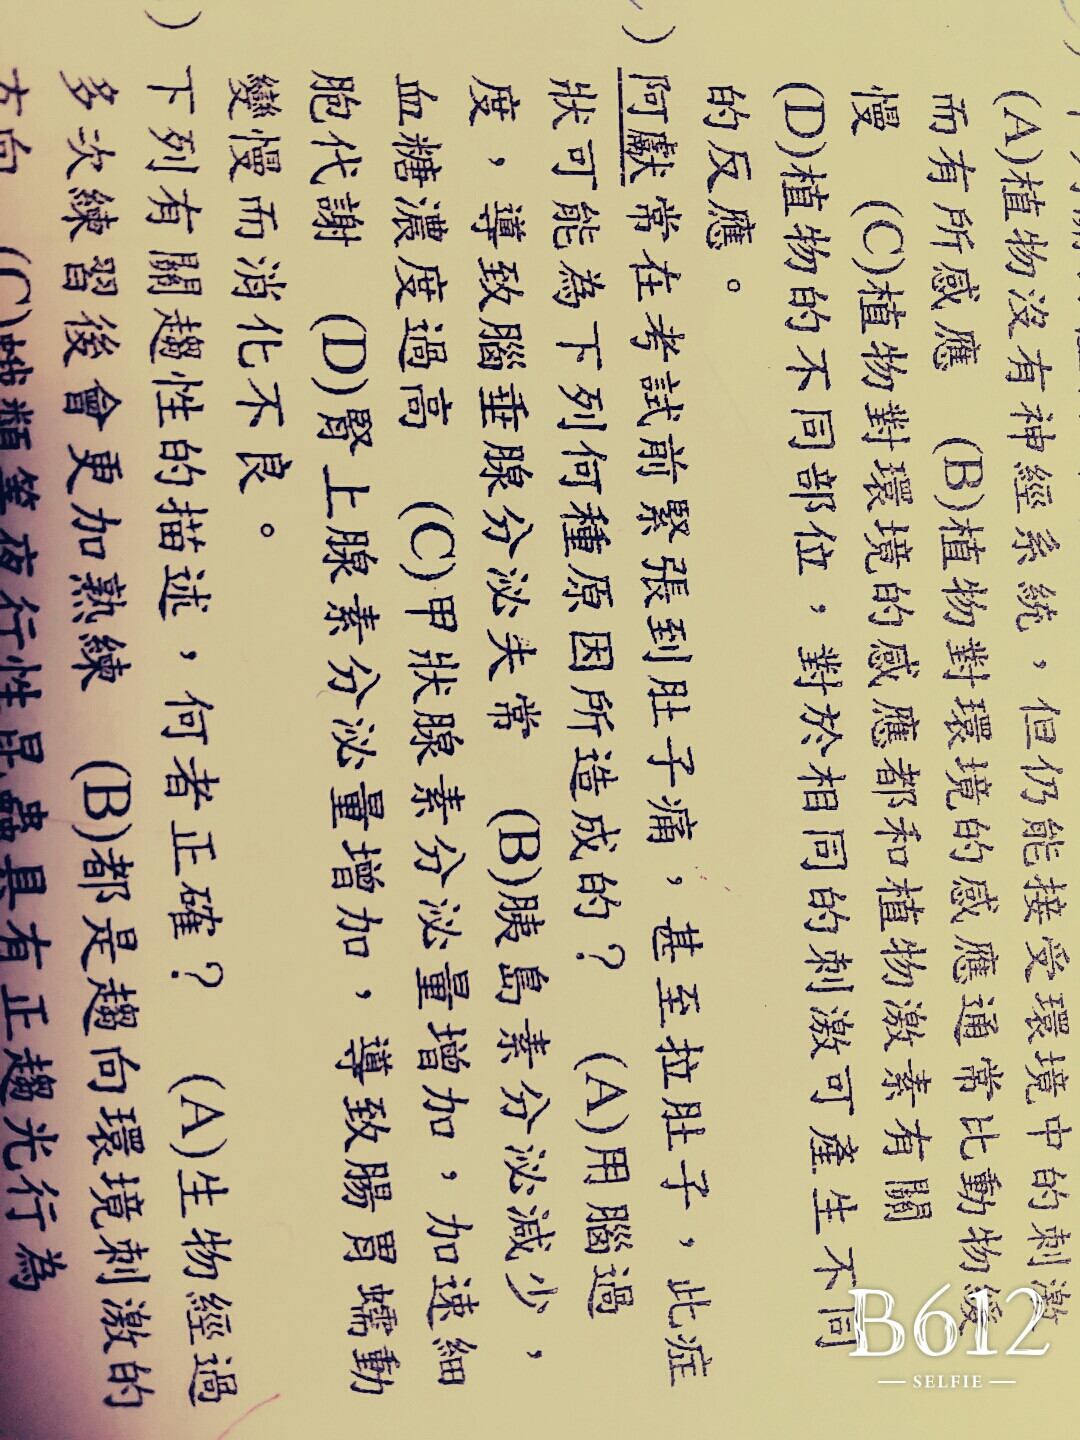 (A)植物沒有神經系統，但仍能接受環境中的刺激
而有所感應 (B)植物對環境的感應通常比動物緩
慢 (C)植物對環境的感應都和植物激素有關
(D)植物的不同部位，對於相同的刺激可產生不同
的反應。
) 阿獻常在考試前緊張到肚子痛，甚至拉肚子，此症
狀可能為下列何種原因所造成的？ (A)用腦過
度，導致腦垂腺分泌失常 (B)胰島素分泌減少，
血糖濃度過高 (C)甲狀腺素分泌量增加，加速細
胞代謝 (D)腎上腺素分泌量增加，導致腸胃蠕動
變慢而消化不良。
) 下列有關趨性的描述，何者正確？ (A)生物經過
多次練習後會更加熟練 (B)都是趨向環境刺激的
方向 (C)蛾類等夜行性昆蟲具有正趨光行為
B612
SELFIE